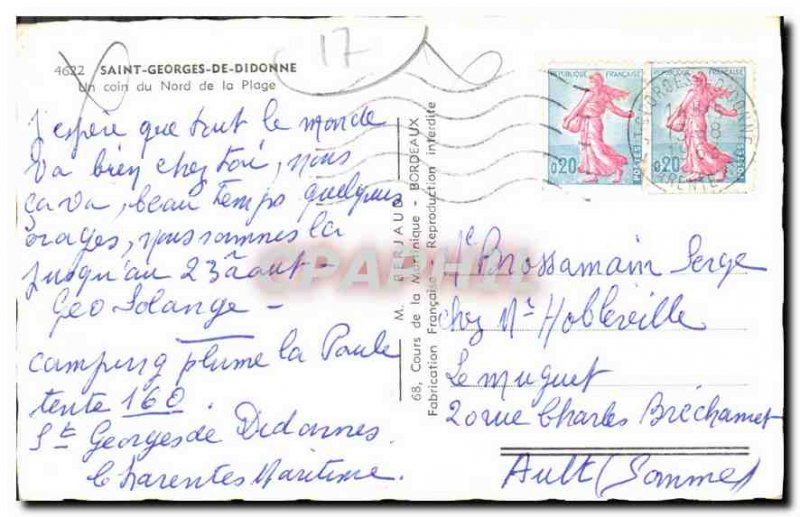 17
4622 SAINT-GEORGES-DE-DIDONNE
Un coin du Nord de la Plage
j'espère que tout le monde
va bien chez toi, nous
ça va, beau temps quelques
orages, nous sommes là
jusqu'au 23 août -
Geo Solange -
camping plume la Poule
tente 160.
St Georges de Didonnes.
Charentes Maritime.
M. BERJAUD
68, Cours de la Martinique - BORDEAUX
Fabrication Française - Reproduction interdite
REPUBLIQUE FRANÇAISE
0,20
POSTES
REPUBLIQUE FRANÇAISE
0,20
POSTES
ST GEORGES DIDONNE
CPAPHIL
Brossamain Serge
chez Mr Hobleville
Le muguet
20 rue Charles Bréchamet
Ault (Somme)